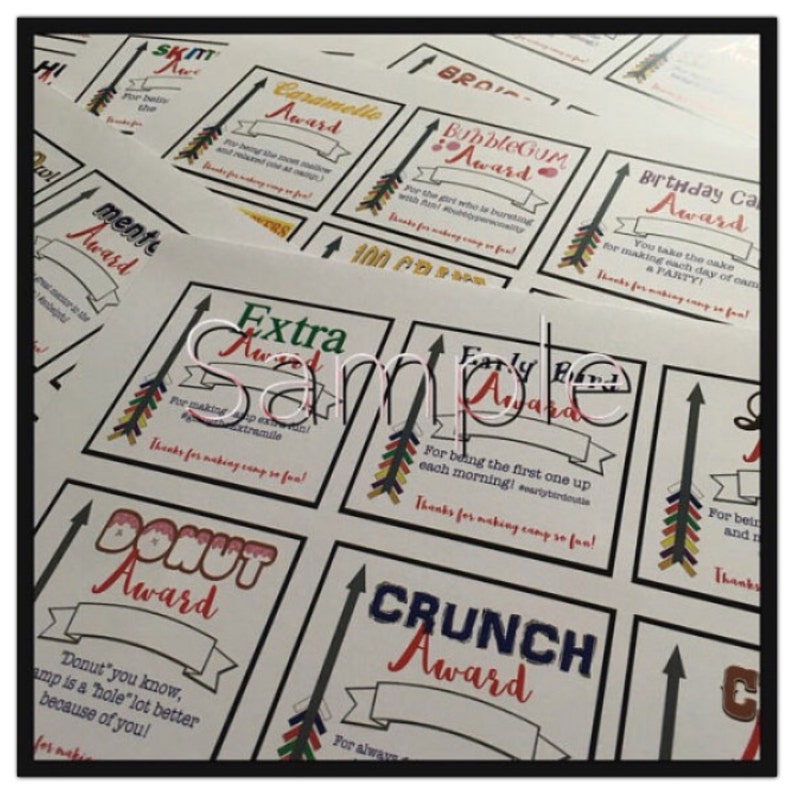 Award
For being
the
Thanks for
Caramello
Award
For being the most mellow
and relaxed one at camp:)
Thanks for making camp so fun!
BubbleGum
Award
For the girl who is bursting
with fun! #bubblypersonality
Thanks for making camp so fun!
Birthday
Award
You take the cake
for making each day of
a PARTY!
Thanks for making camp so fun!
Award
100 GRAND
Extra
Award
For making camp extra fun!
Thanks for making camp so fun!
Early Bird
Award
For being the first one up
each morning! #earlybirdcutie
Thanks for making camp so fun!
Sample
Thanks
DONUT
Award
"Donut" you know,
is a "hole" lot better
because of you!
CRUNCH
Award
For always